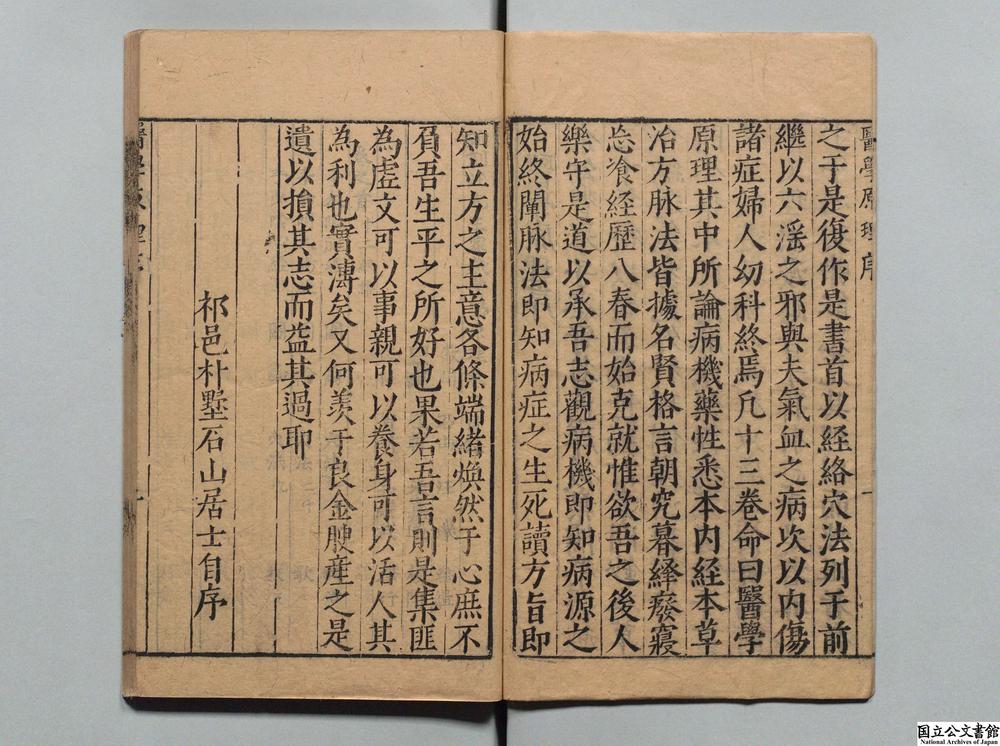 醫學原理序
之于是復作是書首以經絡穴法列于前
繼以六淫之邪與夫氣血之病次以内傷
諸症婦人幼科終焉凡十三卷命曰醫學
原理其中所論病機藥性悉本内経本草
治方脉法皆據名賢格言朝究暮繹癈寢
忘飡経歷八春而始克就惟欲吾之後人
樂守是道以承吾志觀病機即知病源之
始終闡脉法即知病症之生死讀方旨即
知立方之主意各條端緒煥然于心庶不
負吾生平之所好也果若吾言則是集匪
為虗文可以事親可以養身可以活人其
為利也實溥矣又何羨于良金腴産之是
遺以損其志而益其過耶
祁邑朴墅石山居士自序
国立公文書館
National Archives of Japan